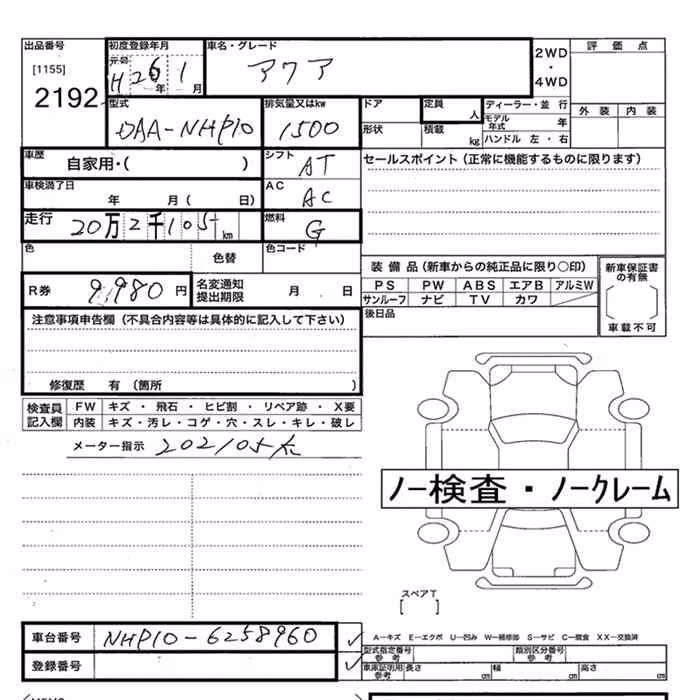 出品番号 初度登録年月 車名・グレード 2WD 評価点
[1155] 元号 H26年1月 アクア ・
2192 4WD 外装 内装
型式 排気量又はkw ドア 定員 人 ディーラー・並行
DAA-NHP10 1500 形状 積載 kg モデル年式 年
ハンドル 左・右
車歴 自家用・( ) シフト AT セールスポイント(正常に機能するものに限ります)
車検満了日 年 月( 日) AC AC
走行 20万2千105km 燃料 G
色 色替 色コード
装備品(新車からの純正品に限り○印) 新車保証書の有無
R券 9,980円 名変通知提出期限 月 日 PS PW ABS エアB アルミW [ ]
サンルーフ ナビ TV カワ 車載不可
注意事項申告欄(不具合内容等は具体的に記入して下さい) 後日品
修復歴 有(箇所 )
検査員 FW キズ・飛石・ヒビ割・リペア跡・X要
記入欄 内装 キズ・汚レ・コゲ・穴・スレ・キレ・破レ
メーター指示 202105
ノー検査・ノークレーム
スペアT
[ ]
車台番号 NHP10-6258960 ✓ A-キズ E-エクボ U-凹み W-補修跡 S-サビ C-腐食 XX-交換済
型式指定番号 参考 類別区分番号 参考
登録番号 ✓ 車庫証明用参考 長さ cm 幅 cm 高さ cm